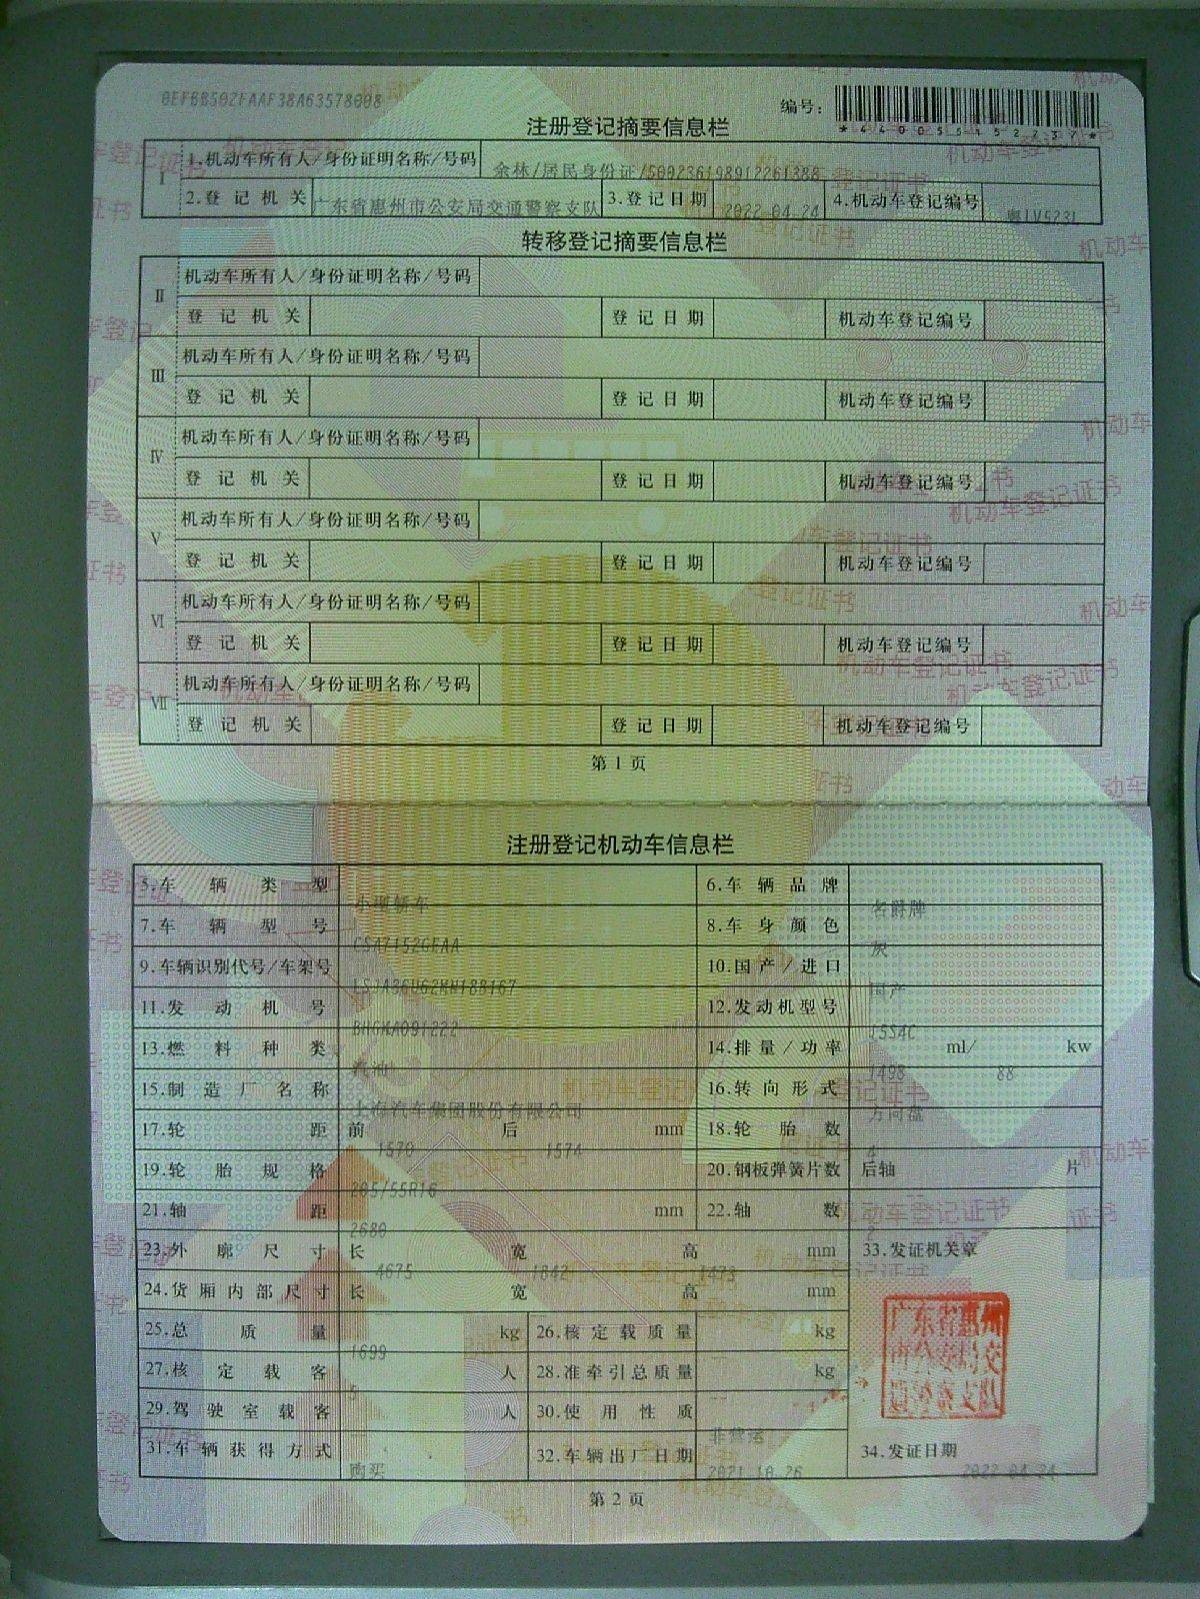 0EF6B502FAAF38A63578008
编号：
*440055452237*
注册登记摘要信息栏
I 1.机动车所有人/身份证明名称/号码 余林/居民身份证/500236198912261388
2.登记机关 广东省惠州市公安局交通警察支队 3.登记日期 2022-04-24 4.机动车登记编号
转移登记摘要信息栏
II 机动车所有人/身份证明名称/号码
登记机关 登记日期 机动车登记编号
III 机动车所有人/身份证明名称/号码
登记机关 登记日期 机动车登记编号
IV 机动车所有人/身份证明名称/号码
登记机关 登记日期 机动车登记编号
V 机动车所有人/身份证明名称/号码
登记机关 登记日期 机动车登记编号
VI 机动车所有人/身份证明名称/号码
登记机关 登记日期 机动车登记编号
VII 机动车所有人/身份证明名称/号码
登记机关 登记日期 机动车登记编号
第 1 页
注册登记机动车信息栏
5.车辆类型 小型轿车 6.车辆品牌 名爵牌
7.车辆型号 CSA7152GEAA 8.车身颜色 灰
9.车辆识别代号/车架号 10.国产/进口 国产
11.发动机号 12.发动机型号 15S4C
13.燃料种类 汽油 14.排量/功率 1498 ml/ 88 kw
15.制造厂名称 上海汽车集团股份有限公司 16.转向形式 方向盘
17.轮距 前 1570 后 1574 mm 18.轮胎数 4
19.轮胎规格 205/55R16 20.钢板弹簧片数 后轴 片
21.轴距 2680 mm 22.轴数 2
23.外廓尺寸 长 4675 宽 1842 高 1473 mm 33.发证机关章
24.货厢内部尺寸 长 宽 高 mm
广东省惠州市公安局交通警察支队
25.总质量 1699 kg 26.核定载质量 -- kg
27.核定载客 5 人 28.准牵引总质量 -- kg
29.驾驶室载客 -- 人 30.使用性质 非营运
31.车辆获得方式 购买 32.车辆出厂日期 2021-10-26 34.发证日期 2022-04-24
第 2 页